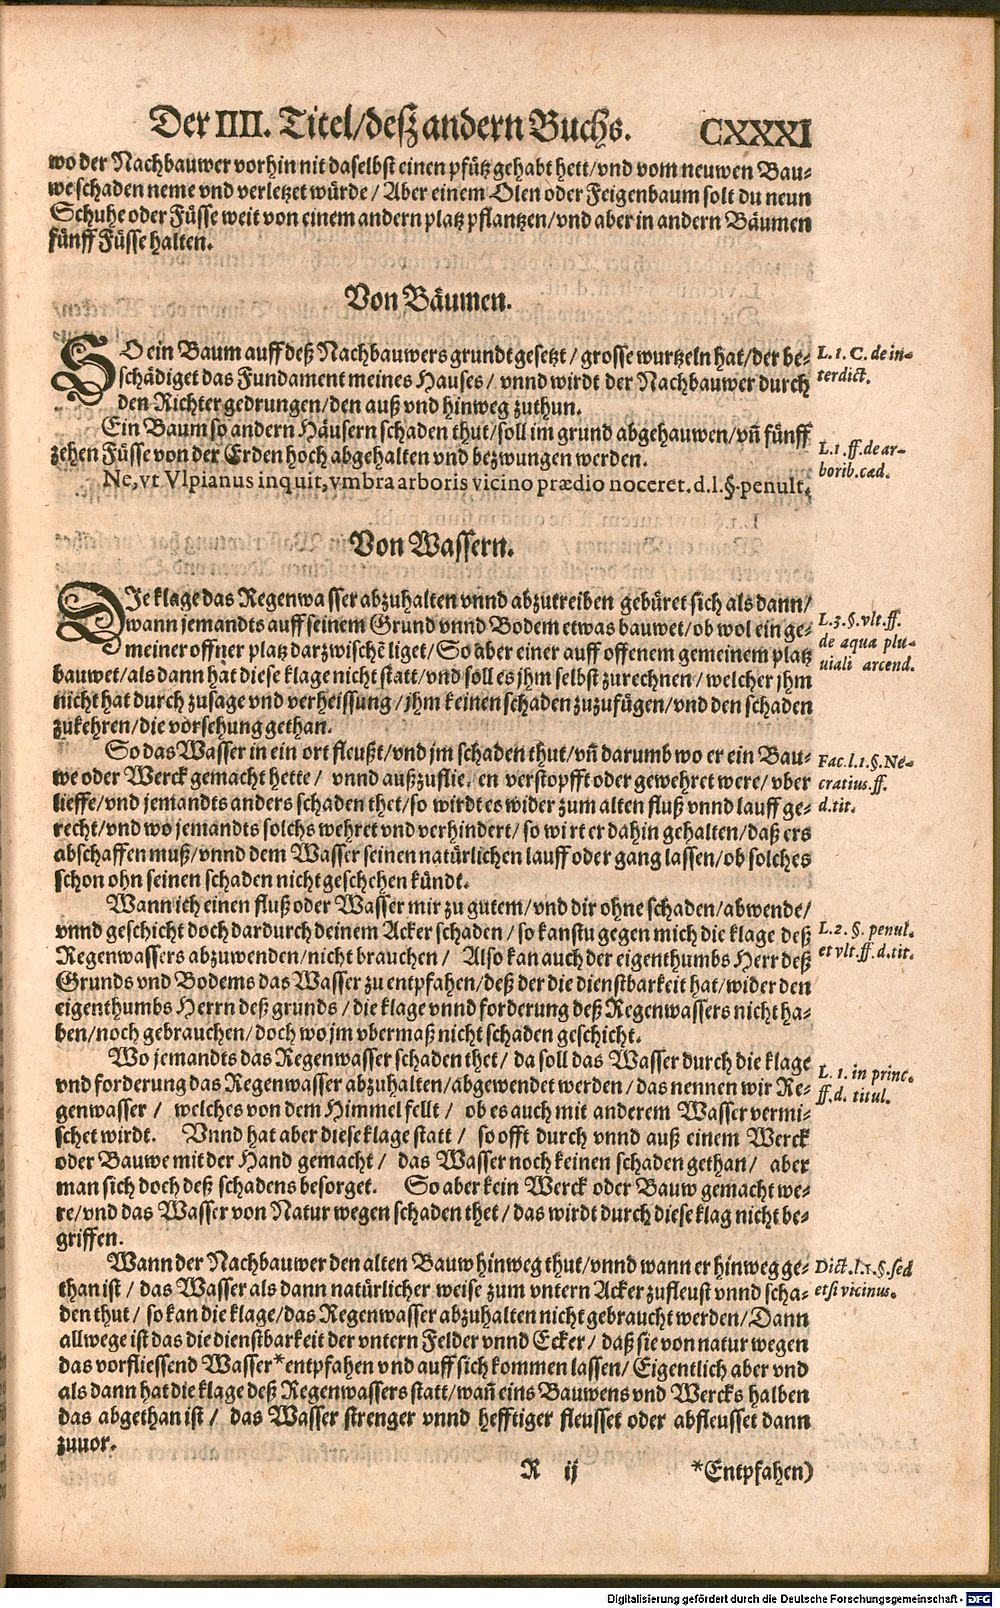 Der IIII. Titel/deß andern Buchs. CXXXI
wo der Nachbauwer vorhin nit daselbst einen pfütz gehabt hett/vnd vom neuwen Bau⸗
we schaden neme vnd verletzet würde/Aber einem Olen oder Feigenbaum solt du neun
Schuhe oder Füsse weit von einem andern platz pflantzen/vnd aber in andern Bäumen
fünff Füsse halten.
Von Bäumen.
SO ein Baum auff deß Nachbauwers grundt gesetzt/grosse wurtzeln hat/der be⸗
schädiget das Fundament meines Hauses/vnnd wirdt der Nachbauwer durch
den Richter gedrungen/den auß vnd hinweg zuthun.
L. 1. C. de in-
terdict.
Ein Baum so andern Häusern schaden thut/soll im grund abgehauwen/vñ fünff
zehen Füsse von der Erden hoch abgehalten vnd bezwungen werden.
Ne, vt Vlpianus inquit, vmbra arboris vicino prædio noceret. d.l.§. penult.
L. 1. ff. de ar-
borib. cæd.
Von Wassern.
DIe klage das Regenwasser abzuhalten vnnd abzutreiben gebüret sich als dann/
wann jemandts auff seinem Grund vnnd Bodem etwas bauwet/ob wol ein ge⸗
meiner offner platz darzwischẽ liget/So aber einer auff offenem gemeinem platz
bauwet/als dann hat diese klage nicht statt/vnd soll es jhm selbst zurechnen/welcher jhm
nicht hat durch zusage vnd verheissung/jhm keinen schaden zuzufügen/vnd den schaden
zukehren/die vorsehung gethan.
L. 3. §. vlt. ff.
de aqua plu-
uiali arcend.
So das Wasser in ein ort fleußt/vnd jm schaden thut/vñ darumb wo er ein Bau⸗
we oder Werck gemacht hette/vnnd außzuflie en verstopfft oder gewehret were/vber
lieffe/vnd jemandts anders schaden thet/so wirdt es wider zum alten fluß vnnd lauff ge⸗
recht/vnd wo jemandts solchs wehret vnd verhindert/so wirt er dahin gehalten/daß ers
abschaffen muß/vnnd dem Wasser seinen natürlichen lauff oder gang lassen/ob solches
schon ohn seinen schaden nicht geschehen kündt.
Fac. l. 1. §. Ne-
cratius. ff.
d. tit.
Wann ich einen fluß oder Wasser mir zu gutem/vnd dir ohne schaden/abwende/
vnnd geschicht doch dardurch deinem Acker schaden/so kanstu gegen mich die klage deß
Regenwassers abzuwenden/nicht brauchen/Also kan auch der eigenthumbs Herr deß
Grunds vnd Bodems das Wasser zu entpfahen/deß der die dienstbarkeit hat/wider den
eigenthumbs Herrn deß grunds/die klage vnnd forderung deß Regenwassers nicht ha⸗
ben/noch gebrauchen/doch wo jm vbermaß nicht schaden geschicht.
L. 2. §. penul.
et vlt. ff. d. tit.
Wo jemandts das Regenwasser schaden thet/da soll das Wasser durch die klage
vnd forderung das Regenwasser abzuhalten/abgewendet werden/das nennen wir Re⸗
genwasser/welches von dem Himmel fellt/ob es auch mit anderem Wasser vermi⸗
schet wirdt. Vnnd hat aber diese klage statt/so offt durch vnnd auß einem Werck
oder Bauwe mit der Hand gemacht/das Wasser noch keinen schaden gethan/aber
man sich doch deß schadens besorget. So aber kein Werck oder Bauw gemacht we⸗
re/vnd das Wasser von Natur wegen schaden thet/das wirdt durch diese klag nicht be⸗
griffen.
L. 1. in princ.
ff. d. titul.
Wann der Nachbauwer den alten Bauw hinweg thut/vnnd wann er hinweg ge⸗
than ist/das Wasser als dann natürlicher weise zum vntern Acker zufleust vnnd scha⸗
den thut/so kan die klage/das Regenwasser abzuhalten nicht gebraucht werden/Dann
allwege ist das die dienstbarkeit der vntern Felder vnnd Ecker/daß sie von natur wegen
das vorfliessend Wasser*entpfahen vnd auff sich kommen lassen/Eigentlich aber vnd
als dann hat die klage deß Regenwassers statt/wañ eins Bauwens vnd Wercks halben
das abgethan ist/das Wasser strenger vnnd hefftiger fleusset oder abfleusset dann
zuuor.
Dict. l. 1. §. sed
etsi vicinus.
R ij *Entpfahen)
Digitalisierung gefördert durch die Deutsche Forschungsgemeinschaft - DFG